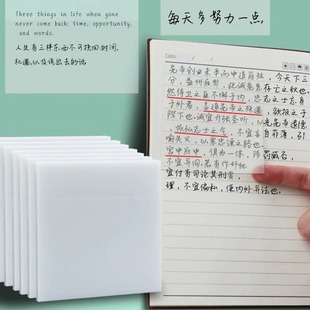 Three things in life when gone
never come back: time, opportunity,
and words.
人生有三样东西不可挽回:时间,
机遇,以及说出去的话
每天多努力一点,
先帝创业未半而中道崩殂，今天下三
分，益州疲弊，此诚危急存亡之秋也。
然侍卫之臣不懈于内，忠志之士忘身
于外者，盖追先帝之殊遇，欲报之于
陛下也。诚宜开张圣听，以光先帝遗德，
恢弘志士之气，不宜妄自菲薄，引
喻失义，以塞忠谏之路也。
宫中府中，俱为一体，陟罚臧否，
不宜异同。若有作奸犯
宜付有司论其刑赏，
理，不宜偏私，使内外异法也。